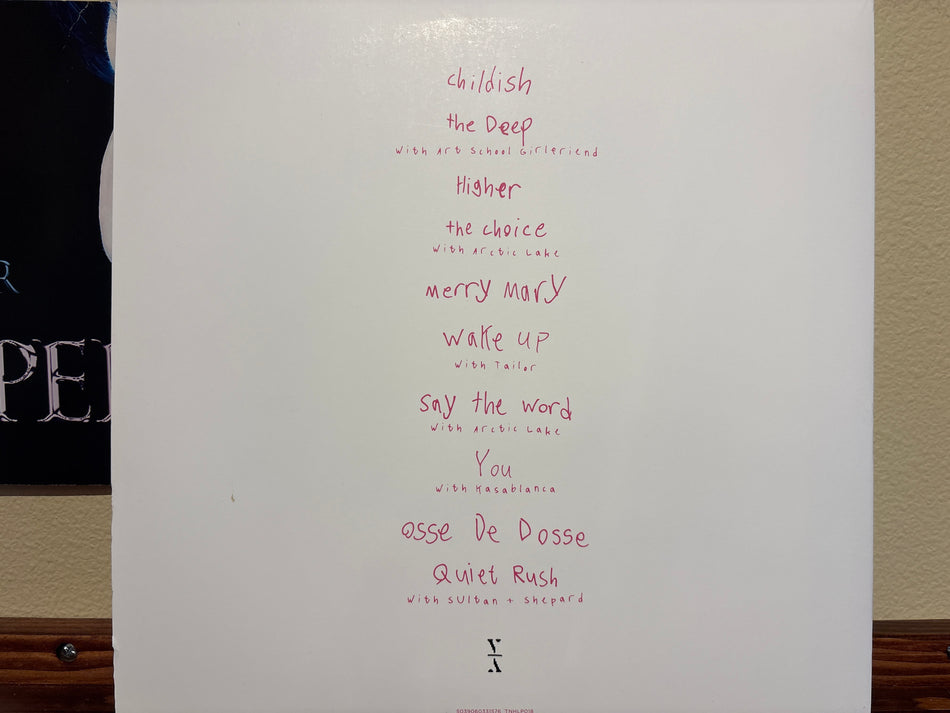 childish
the Deep
With Art School Girlfriend
Higher
the choice
With Arctic Lake
merry mary
wake up
With Tailor
say the word
With Arctic Lake
You
With Kasablanca
osse De Dosse
Quiet Rush
With Sultan + Shepard
R
PE